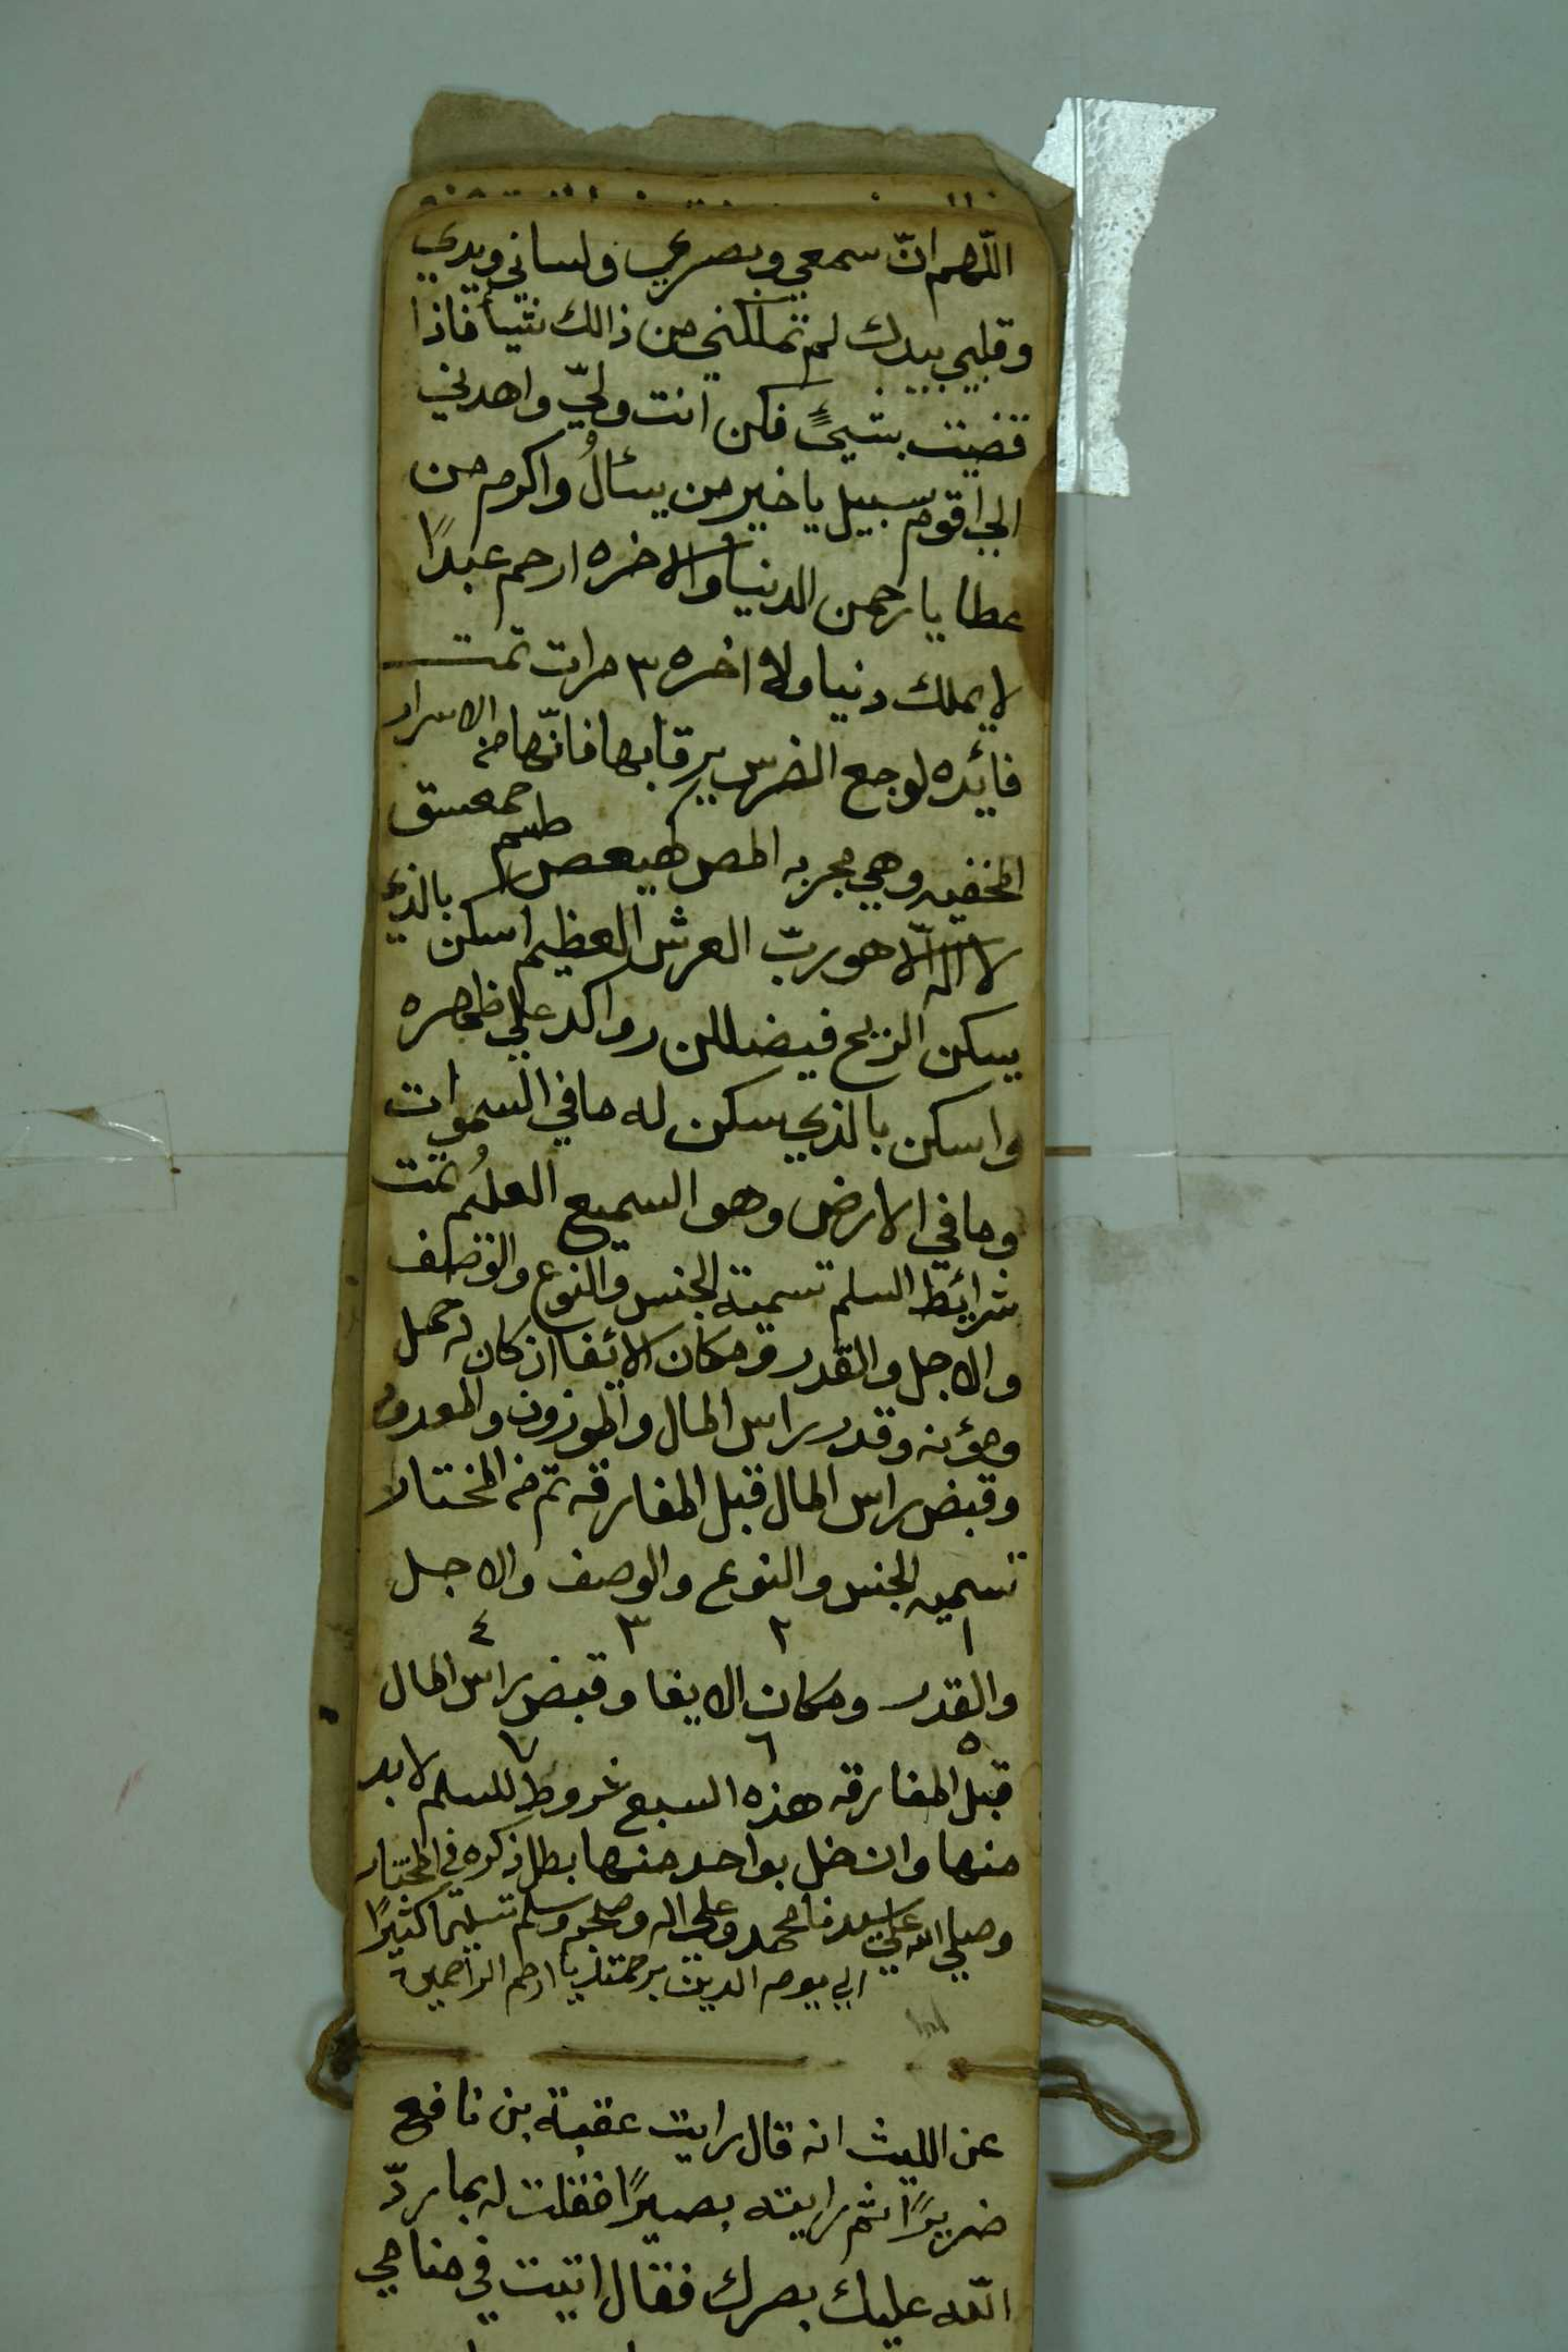 اللّهم انّ سمعي وبصري ولساني ويدي
وقلبي بيدك لم تملكني من ذالك شيأ فاذا
قضيت بشيءٍ فكن انت وليّ واهدني
الي اقوم سبيل يا خير من يسئال واكرم من
عطا يا رحمن الدنيا والاخره ارحم عبدًا
لا يملك دنيا ولا اخره ٣ مرات تمت
فائده لوجع الضرس يرقا بها فانّها من الاسرار
المخفيه وهي مجربه المص كهيعص طسم حمعسق
لا اله الّا هو ربّ العرش العظيم اسكن بالذي
يسكن الريح فيضللن رواكد علي ظهره
واسكن بالذي سكن له مافي السموات
ومافي الارض وهو السميع العليم تمت
شرائط السلم تسمية الجنس والنوع والوصف
والاجل والقدر ومكان الائفا ان كان له حمل
ومؤنه وقدر راس المال والموزون والمعدود
وقبض راس المال قبل المفارقه تم من المختار
تسميه الجنس والنوع والوصف والاجل
١ ٢ ٣ ٤
والقدر ومكان الايفا وقبض راس المال
٥ ٦ ٧
قبل المفارقه هذه السبع شروط للسلم لابد
منها وان خل بواحد منها بطل ذكره في المختار
وصلي الله علي سيدنا محمد وعلي اله وصحبه وسلم تسليما كثيرًا
الي يوم الدين برحمتك يا ارحم الراحمين
عن الليث انه قال رايت عقبة بن نافع
ضريرًا ثم رايته بصيرًا فقلت له بما ردّ
اللّه عليك بصرك فقال اتيت في منامي